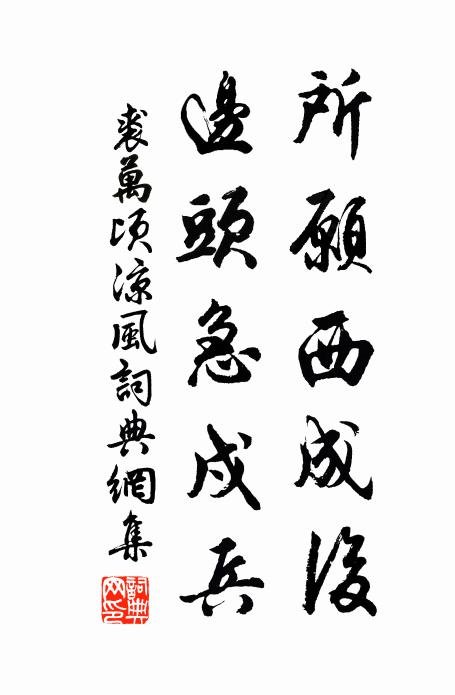 所願西成後
邊頭急戍兵
裘萬頃凉風詞典網集
詞典网印